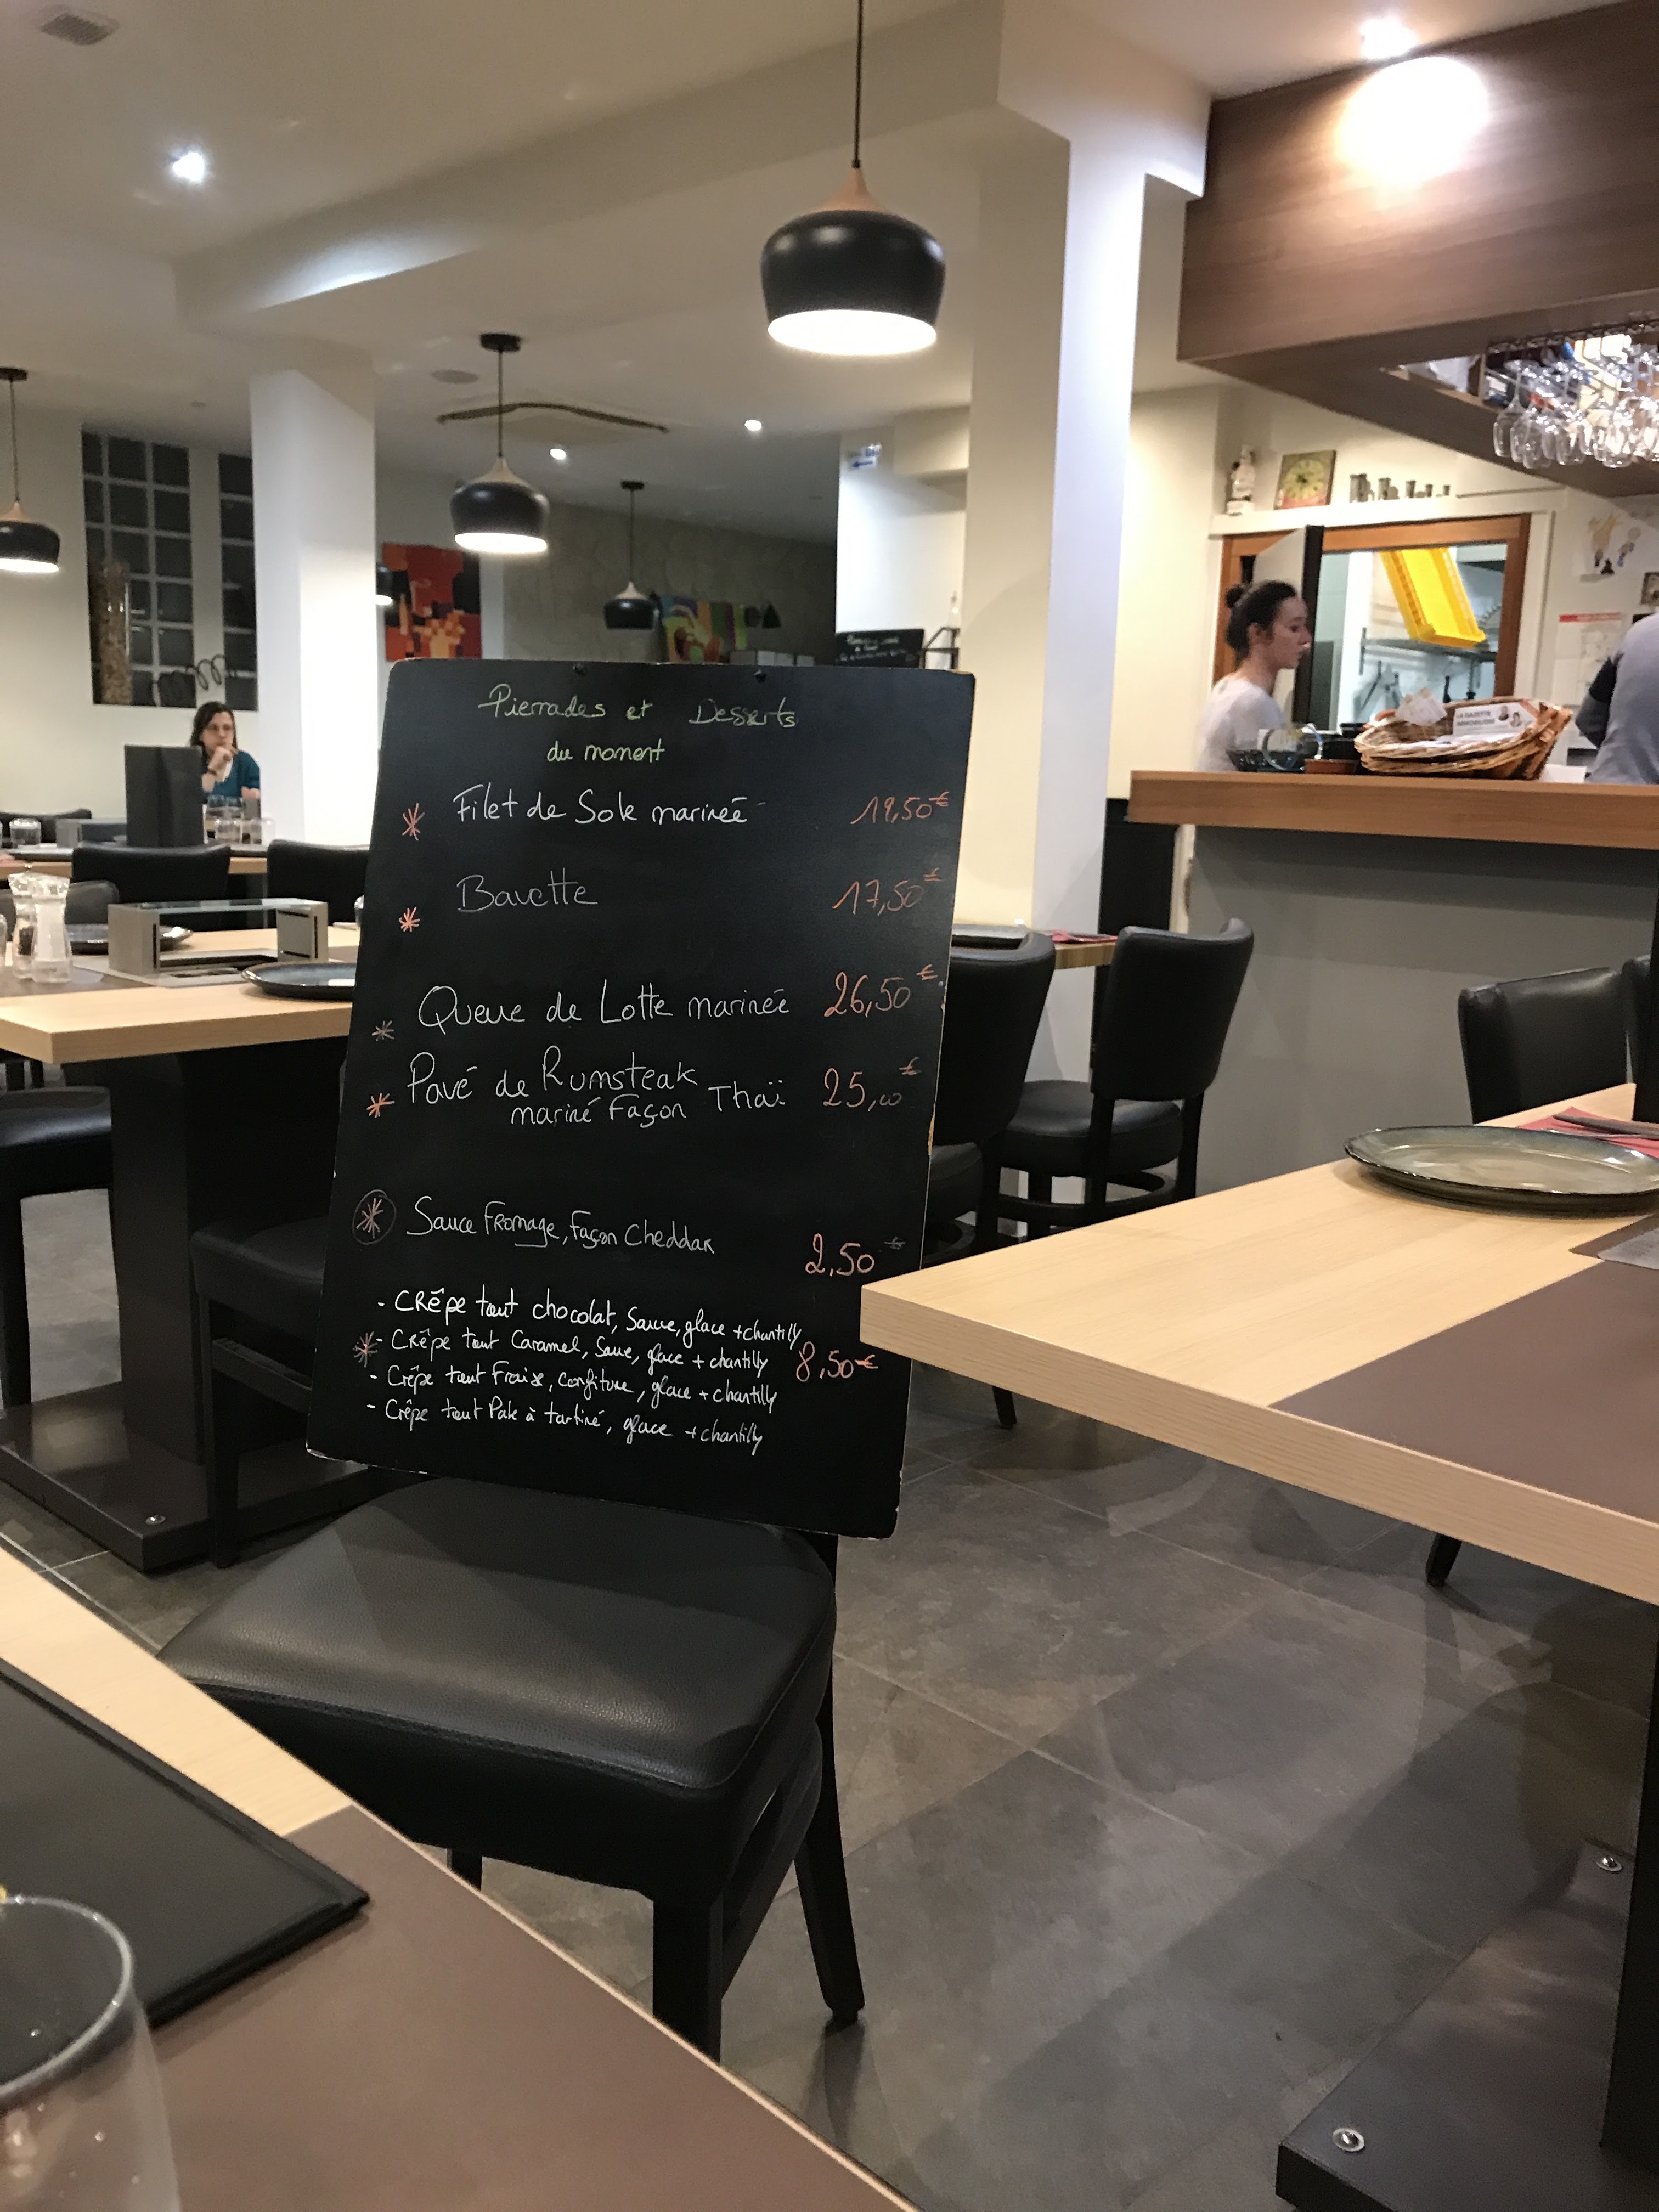 Pierrades et Desserts
du moment
* Filet de Sole marinée 19,50€
* Bavette 17,50€
* Queue de Lotte marinée 26,50€
* Pavé de Rumsteak
mariné Façon Thaï 25,00€
* Sauce Fromage, Façon Cheddar 2,50€
- Crêpe tout chocolat, Sauce, glace + chantilly
* - Crêpe tout Caramel, Sauce, glace + chantilly 8,50€
- Crêpe tout Fraise, confiture, glace + chantilly
- Crêpe tout Pate à tartiné, glace + chantilly
LA GAZETTE
IMMOBILIÈRE